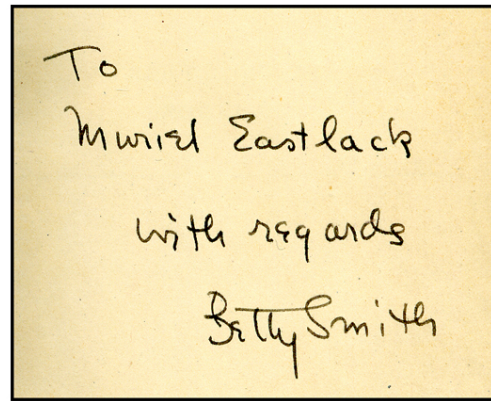 To
Muriel Eastlack
with regards
Betty Smith